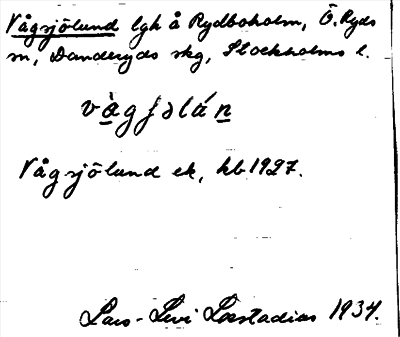 Vågsjölund lgh å Rydboholm, Ö. Ryds
sn, Danderyds skg, Stockholms l.
vàgʃəlán
Vågsjölund ek, kb 1927.
Lars-Levi Læstadius 1934.